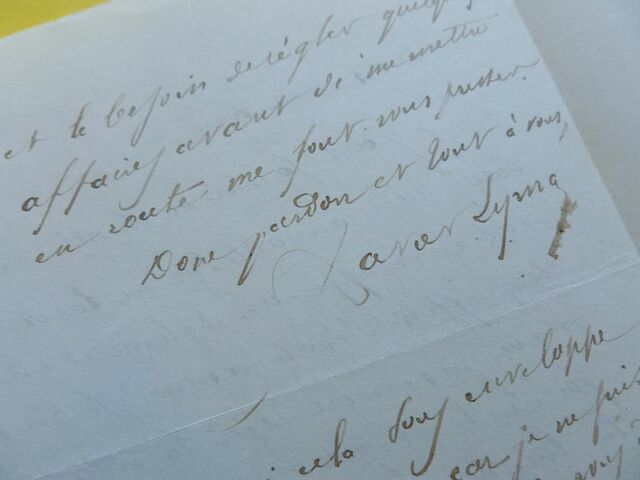 et le besoin de régler quelques
affaires avant de me mettre
en route me font vous presser.
Donc pardon et tout à vous,
Xavier
cela sous enveloppe
car je ne puis